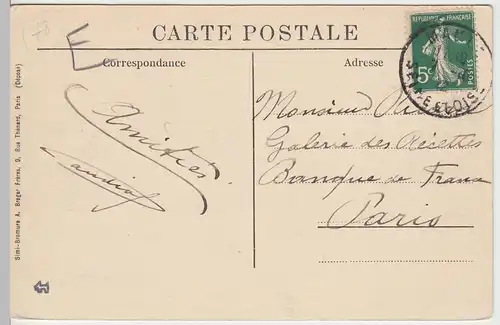 78
E
CARTE POSTALE
Correspondance
Adresse
REPUBLIQUE FRANÇAISE
5c
POSTES
SEINE-ET-OISE
Amitiés
Monsieur
Galerie des Recettes
Banque de France
Paris
Simi-Bromure A. Breger Frères, 9, Rue Thénard, Paris (Déposé)